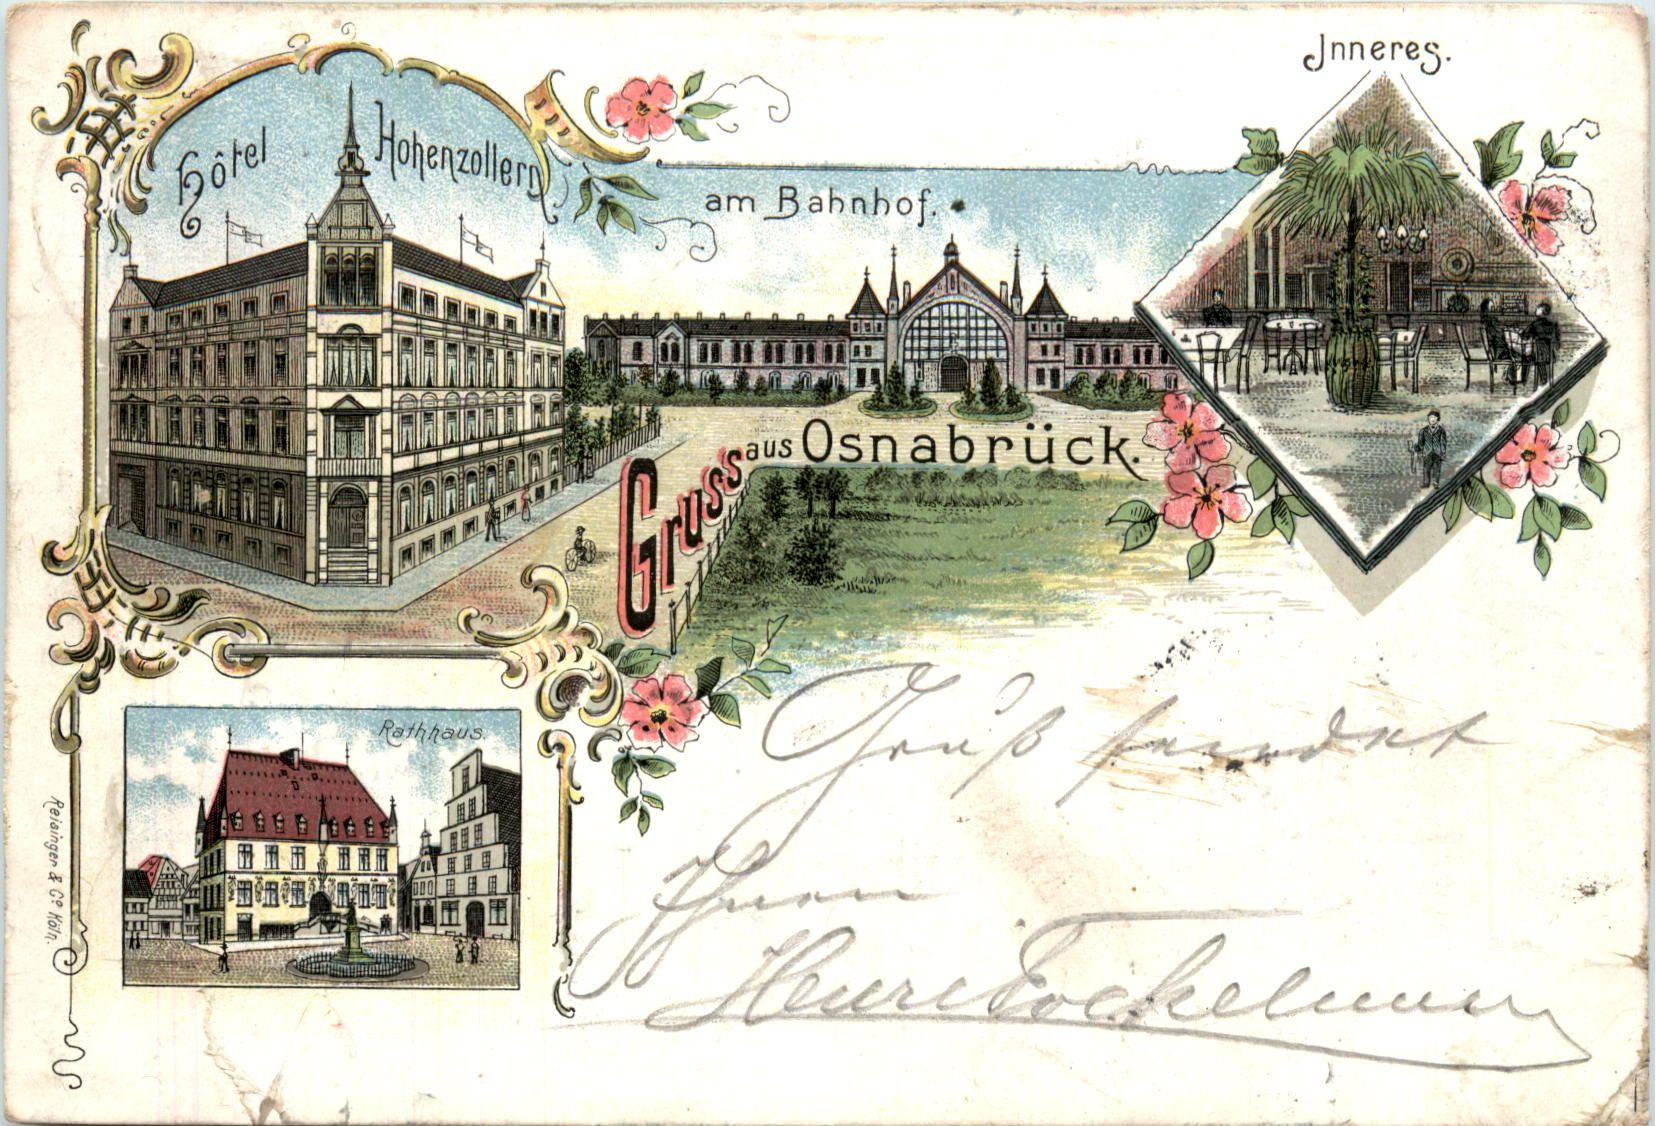 Hôtel Hohenzollern
am Bahnhof.
Inneres.
Gruss aus Osnabrück.
Rathhaus
Reisinger & Co Köln.
Gruß sendet
Ihnen
Henri